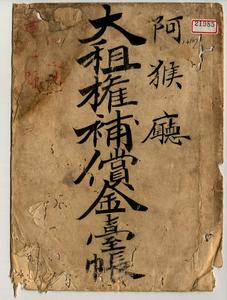 阿猴廳
大租權補償金臺帳
21985